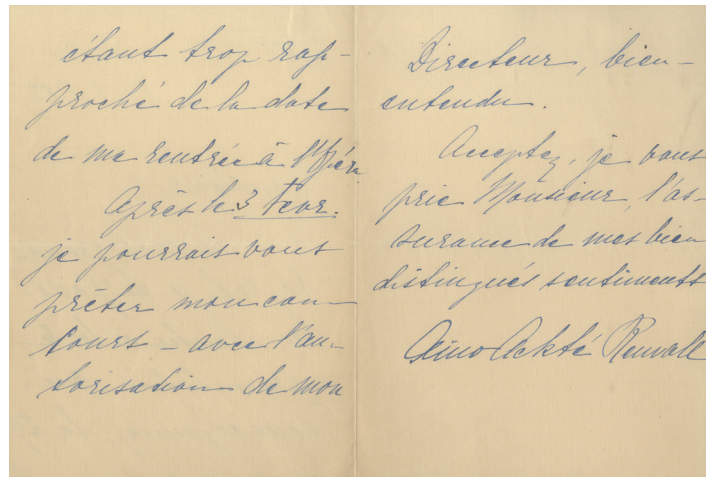 étant trop rap-
proché de la date
de ma rentrée à l'Opéra
Après le 3 Fevr.
je pourrais vous
prêter mon con-
cours – avec l'au-
torisation de mon
Directeur, bien-
entendu.
Acceptez, je vous
prie Monsieur, l'as-
surance de mes bien
distingués sentiments
Aino Ackté Renvall